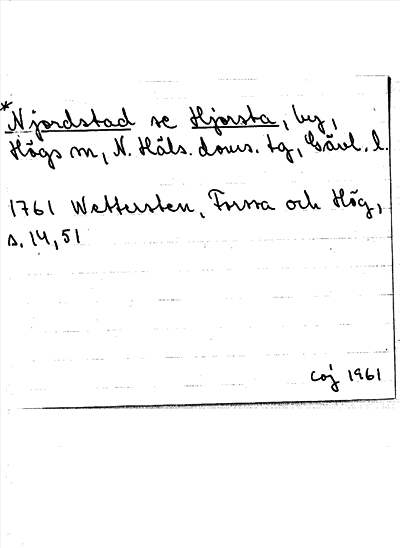 *Njordstad se Hjorsta, by,
Högs sn, N. Häls. doms. tg, Gävl. l.
1761 Wettersten, Forssa och Hög,
s. 14, 51
COJ 1961